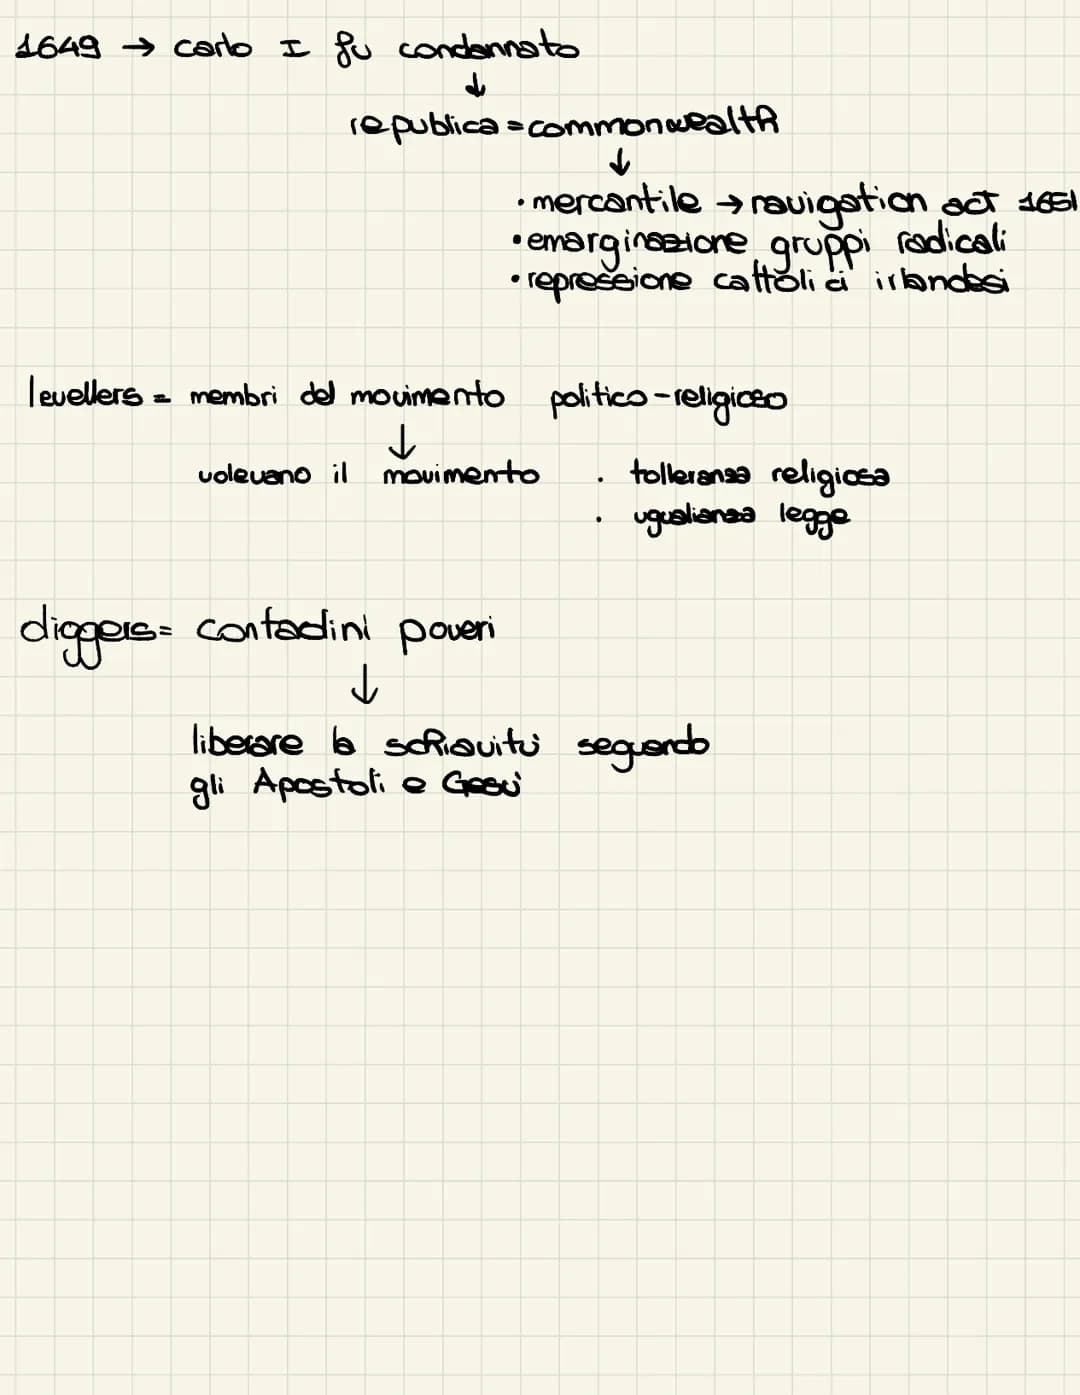 1649 → Carlo I fu condannato
↓
republica = commonwealth
↓
• mercantile → navigation act 1651
• emarginazione gruppi radicali
• repressione cattolici irlandesi
levellers = membri del movimento politico-religioso
↓
volevano il movimento . tolleranza religiosa
. ugualianza legge
diggers = contadini poveri
↓
liberare la schiavitù seguendo
gli Apostoli e Gesù